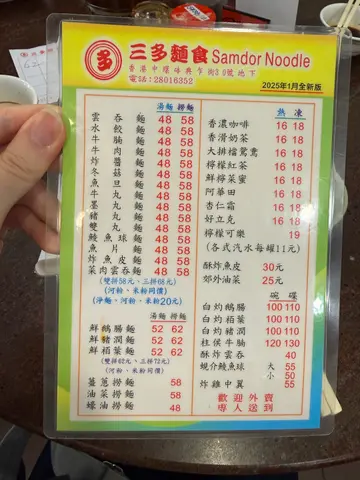 多
三多麵食 Samdor Noodle
香港中環珠典乍街30號地下
電話:28016352
2025年1月全新版
湯麵 撈麵
雲吞麵 48 58
水餃麵 48 58
牛腩麵 48 58
牛肉麵 48 58
炸醬麵 48 58
冬菇麵 48 58
魚旦麵 48 58
牛丸麵 48 58
墨丸麵 48 58
豬丸麵 48 58
雙丸麵 48 58
鯪魚球麵 48 58
魚片麵 48 58
炸魚皮麵 48 58
菜肉雲吞麵 48 58
(雙拼58元、三拼68元)
(河粉、米粉同價)
(淨麵、河粉、米粉20元)
湯麵 撈麵
鮮鵝腸麵 52 62
鮮豬潤麵 52 62
鮮栢葉麵 52 62
(雙拼62元、三拼72元)
(河粉、米粉同價)
薑蔥撈麵 58
油菜撈麵 58
蠔油撈麵 48
熱 凍
香濃咖啡 16 18
香滑奶茶 16 18
大排檔鴛鴦 16 18
檸檬紅茶 16 18
鮮檸菜蜜 16 18
阿華田 16 18
杏仁霜 16 18
好立克 16 18
檸檬可樂 19
(各式汽水每罐11元)
酥炸魚皮 30元
郊外油菜 25元
碗 碟
白灼鵝腸 100 110
白灼栢葉 100 110
白灼豬潤 100 110
柱侯牛腩 120 130
酥炸雲吞 40
蜆介鯪魚球 大 55
小 50
炸雞中翼 55
歡迎外賣
專人送到